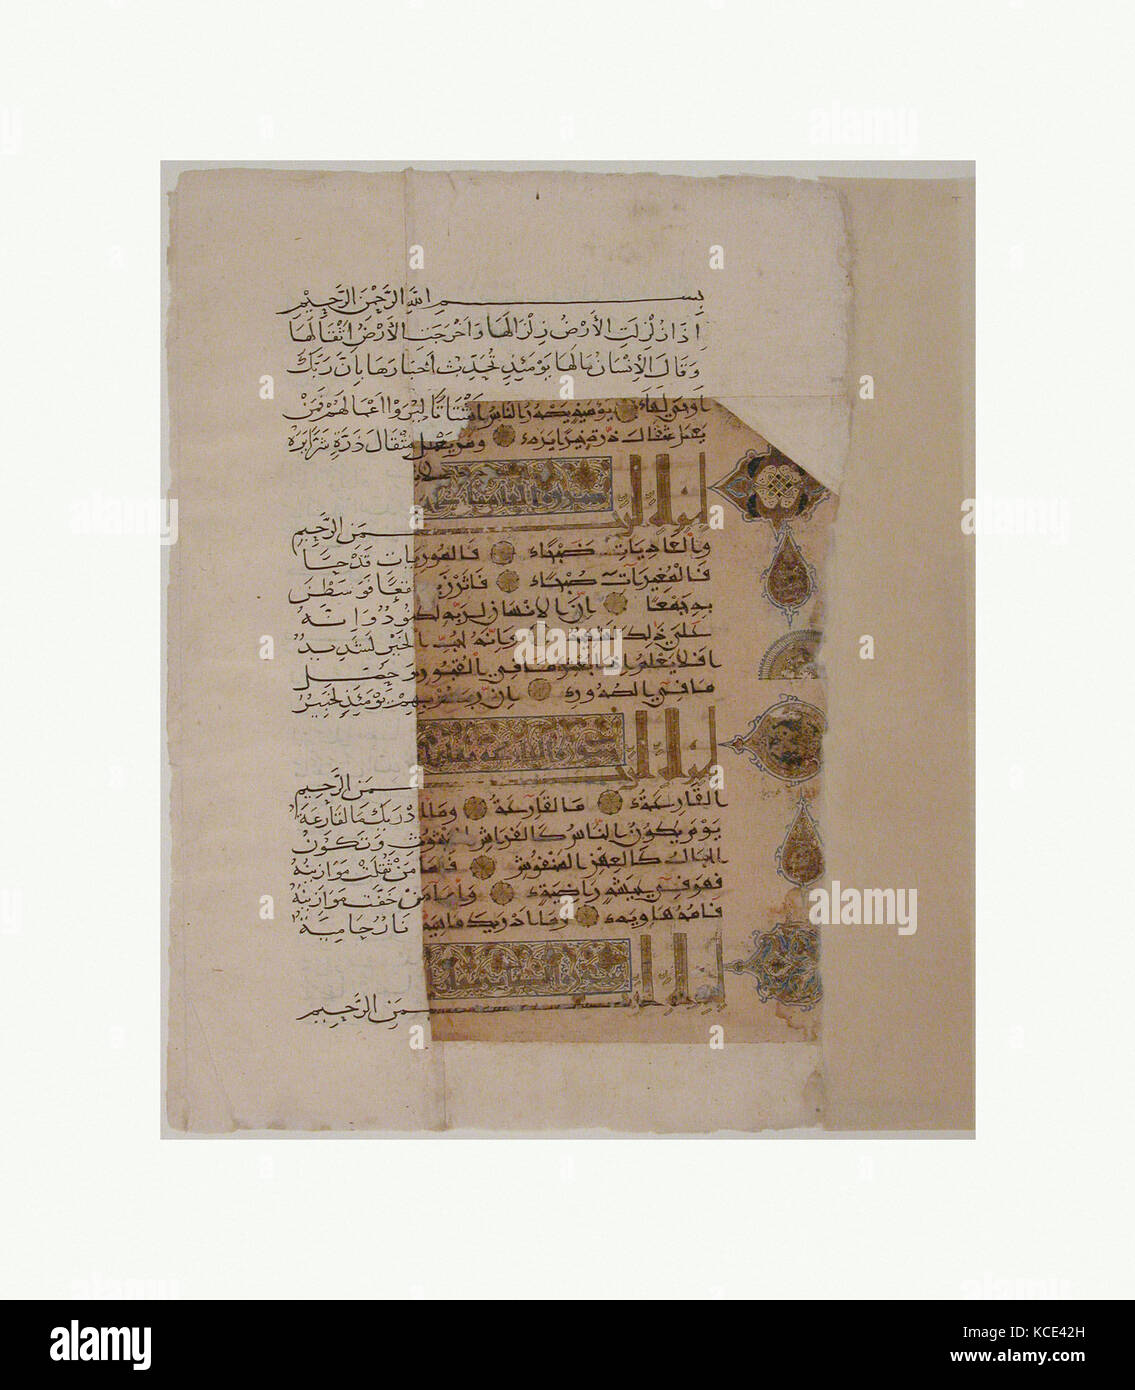 بِسْمِ اللهِ الرَّحْمٰنِ الرَّحِيْمِ
اِذَا زُلْزِلَتِ الْأَرْضُ زِلْزَالَهَا وَاَخْرَجَتِ الْأَرْضُ اَثْقَالَهَا
وَقَالَ الْاِنْسَانُ مَا لَهَا يَوْمَئِذٍ تُحَدِّثُ اَخْبَارَهَا بِاَنَّ رَبَّكَ
اوحى لها يومئذ يصدر الناس اشتاتا ليروا اعمالهم فمن
يعمل مثقال ذرة خيرا يره ومن يعمل مثقال ذرة شرا يره
بسم الله الر
حمن الرحيم
والعاديات ضبحا فالموريات قدحا
فالمغيرات صبحا فاثرن نقعا فوسطن
به جمعا ان الانسان لربه لكنود وانه
على ذلك لشهيد وانه لحب الخير لشديد
افلا يعلم اذا بعثر ما في القبور وحصل
ما في الصدور ان ربهم بهم يومئذ لخبير
سورة القارعة
بسم الله الر
حمن الرحيم
القارعة ما القارعة وما ادريك ما القارعة
يوم يكون الناس كالفراش المبثوث وتكون
الجبال كالعهن المنفوش فاما من ثقلت موازينه
فهو في عيشة راضية واما من خفت موازينه
فامه هاوية وما ادريك ماهيه نار حامية
بسم الله الر
حمن الرحيم
alamy
Image ID: KCE42H
www.alamy.com